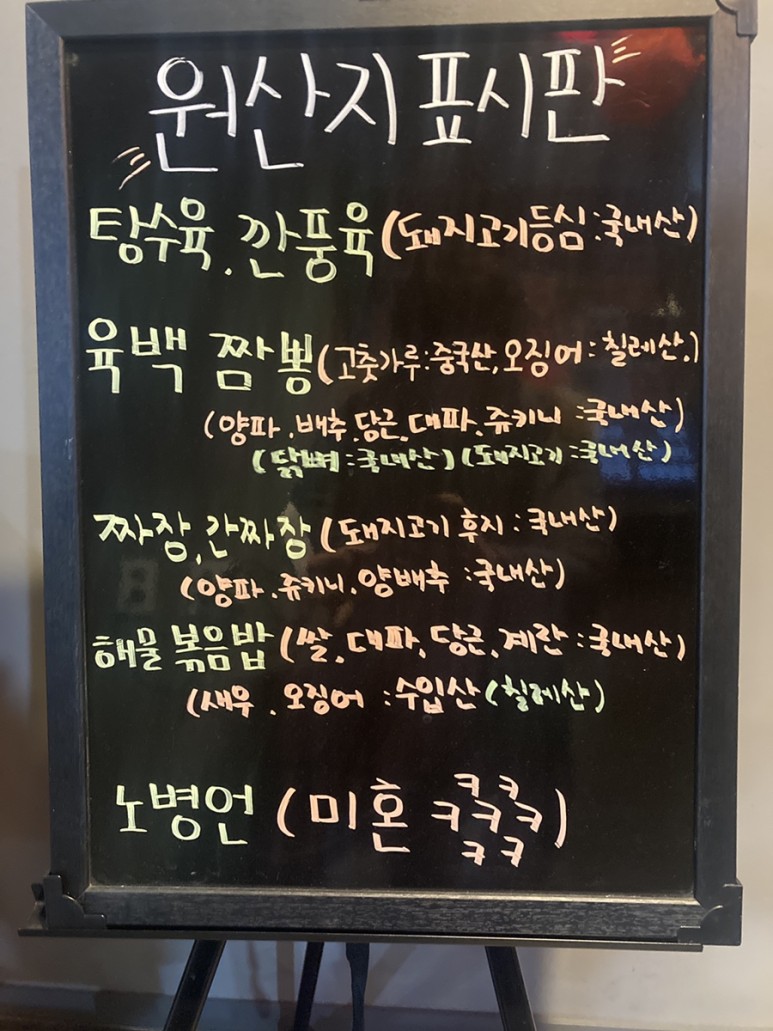 원산지 표시판
탕수육. 깐풍육 (돼지고기등심:국내산)
육백 짬뽕 (고춧가루:중국산, 오징어:칠레산.)
(양파.배추.당근.대파.쥬키니 :국내산)
(닭뼈:국내산) (돼지고기:국내산)
짜장, 간짜장 (돼지고기 후지:국내산)
(양파.쥬키니.양배추 :국내산)
해물 볶음밥 (쌀.대파.당근.계란:국내산)
(새우. 오징어 :수입산(칠레산)
노병언 (미혼 ㅋㅋㅋㅋㅋㅋㅋ)